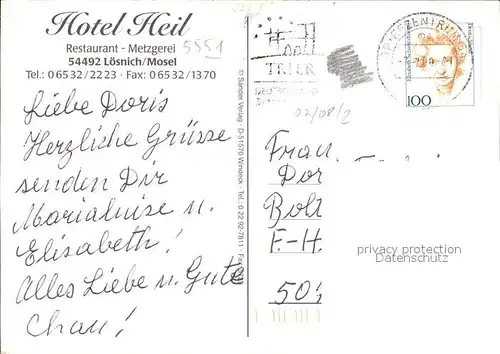 Hotel Heil
Restaurant - Metzgerei
54492 Lösnich/Mosel
Tel.: 06532/2223 · Fax: 06532/1370
5551
Liebe Doris
Herzliche Grüsse
senden Dir
Marialuise u.
Elisabeth!
Alles Liebe u. Gute
Chau!
© Sander Verlag · D-51570 Windeck · Tel.: 0 22 92-7811 · Fax
TRIER
BRIEFZENTRUM
100
02/08/2
Frau
Dor
Bolt
F.-H.
50
privacy protection
Datenschutz